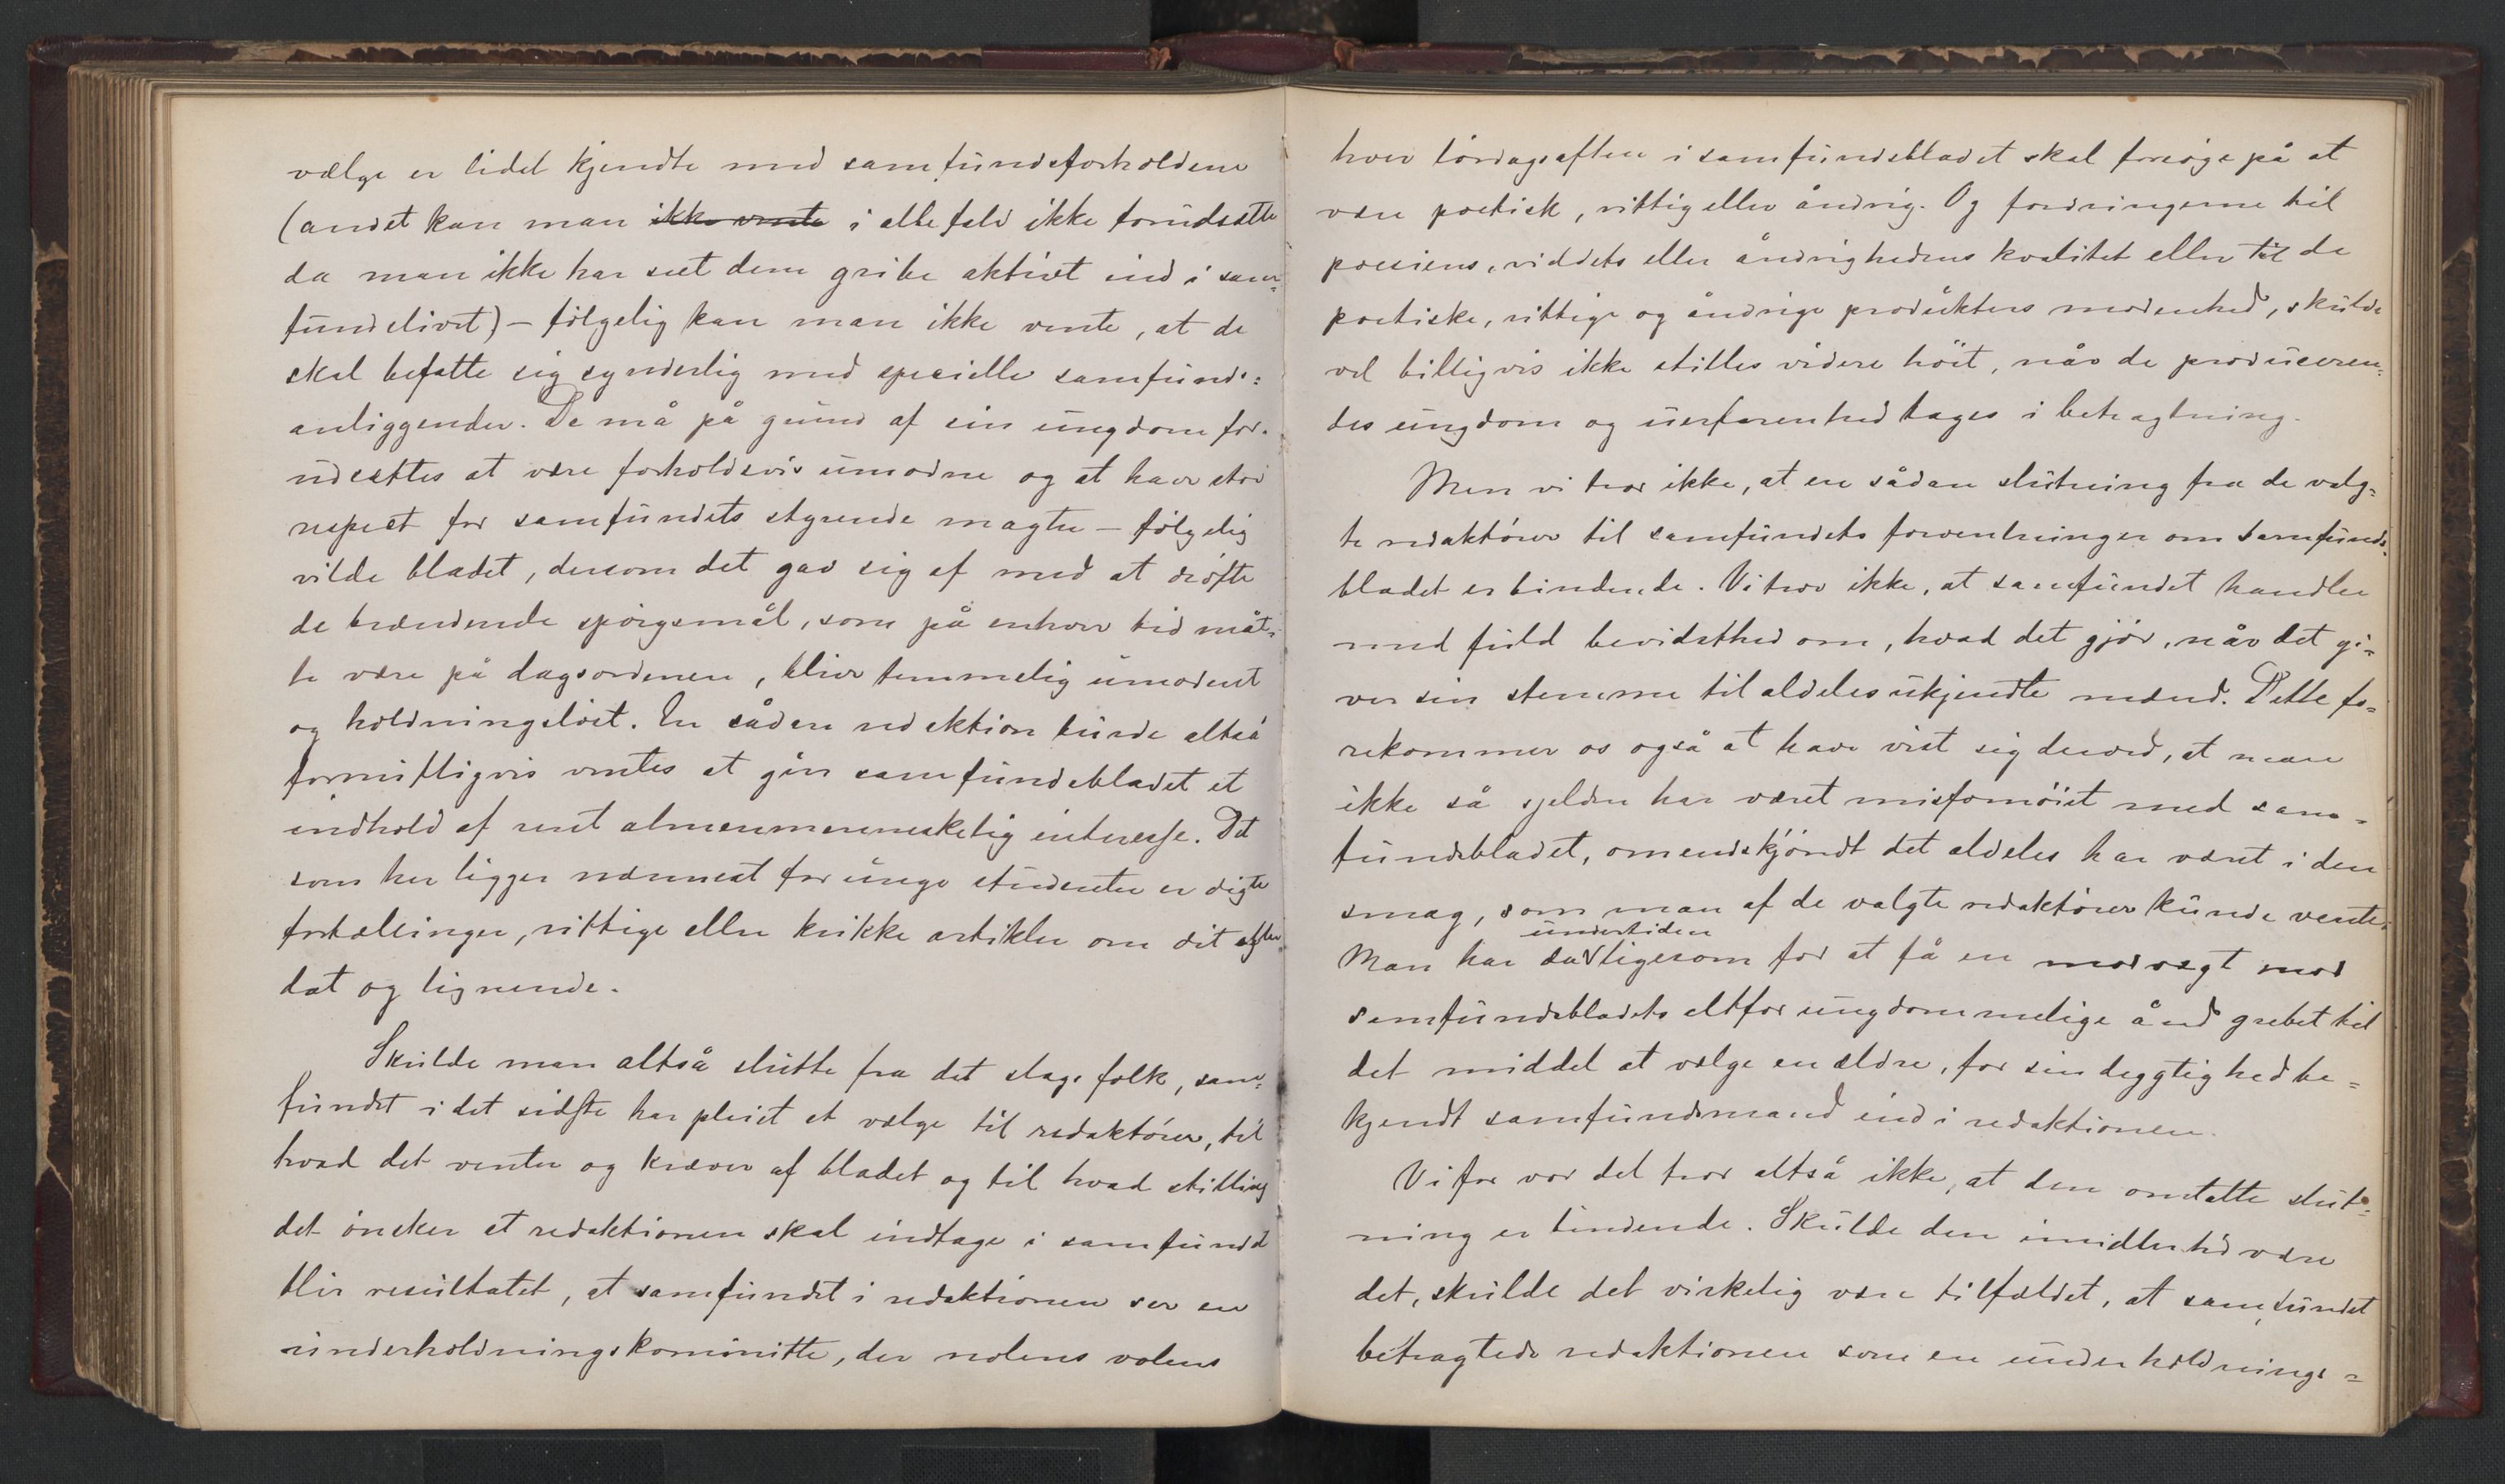 vælge er lidet kjendte med samfundsforholdene
(andet kan man ikke vente i alle fald ikke forudsætte
da man ikke har seet dem gribe aktivt ind i sam=
fundslivet) – følgelig kan man ikke vente, at de
skal befatte sig synderlig med specielle samfunds=
anliggender. De må på grund af sin ungdom for=
udsættes at være forholdsvis umodne og at have stor
respect for samfundets styrende magter – følgelig
vilde bladet, dersom det gav sig af med at drøfte
de brændende spörgsmål, som på enhver tid måt=
te være på dagsordenen, blive temmelig umodent
og holdningsløst. En sådan redaktion burde altså
fornuftigvis ventes at give samfundsbladet et
indhold af rent almenmenneskelig interesse. Det
som her ligger nærmest for unge studenter er digte
fortællinger, vittige eller kvikke artikler om dit eller
dat og lignende.
Skulde man altså slutte fra det slags folk, sam=
fundet i det sidste har pleiet at vælge til redaktører, til
hvad det venter og kræver af bladet og til hvad stilling
det önsker at redaktionen skal indtage i samfundet
blir resultatet, at samfundet i redaktionen ser en
underholdningskommitte, der nolens volens
hver lørdagsaften i samfundsbladet skal forsøge på at
være poetisk, vittig eller åndrig. Og fordringerne til
poesiens, viddets eller åndrighedens kvalitet eller til de
poetiske, vittige og åndrige produkters modenhed, skulde
vel billigvis ikke stilles videre höit, når de produceren=
des ungdom og uerfarenhed tages i betragtning.
Men vi tror ikke, at en sådan slutning fra de valg=
te redaktører til samfundets forventninger om samfunds=
bladet er bindende. Vi tror ikke, at samfundet handler
med fuld bevidsthed om, hvad det gjör, når det gi=
ver sin stemme til aldeles ukjendte mænd. Dette fo=
rekommer os også at have vist sig derved, at man
ikke så sjelden har været misfornöiet med sam=
fundsbladet, omendskjöndt det aldeles har været i den
smag, som man af de valgte redaktører kunde vente.
undertiden
Man har da ligesom for at få en modvægt mod
samfundsbladets altfor ungdommelige ånd grebet til
det middel at vælge en ældre, for sin dygtighed be=
kjendt samfundsmand ind i redaktionen.
Vi for vor del tror altså ikke, at den omtalte slut=
ning er bindende. Skulde den imidlertid være
det, skulde det virkelig være tilfældet, at samfundet
betragtede redaktionen som en underholdnings=